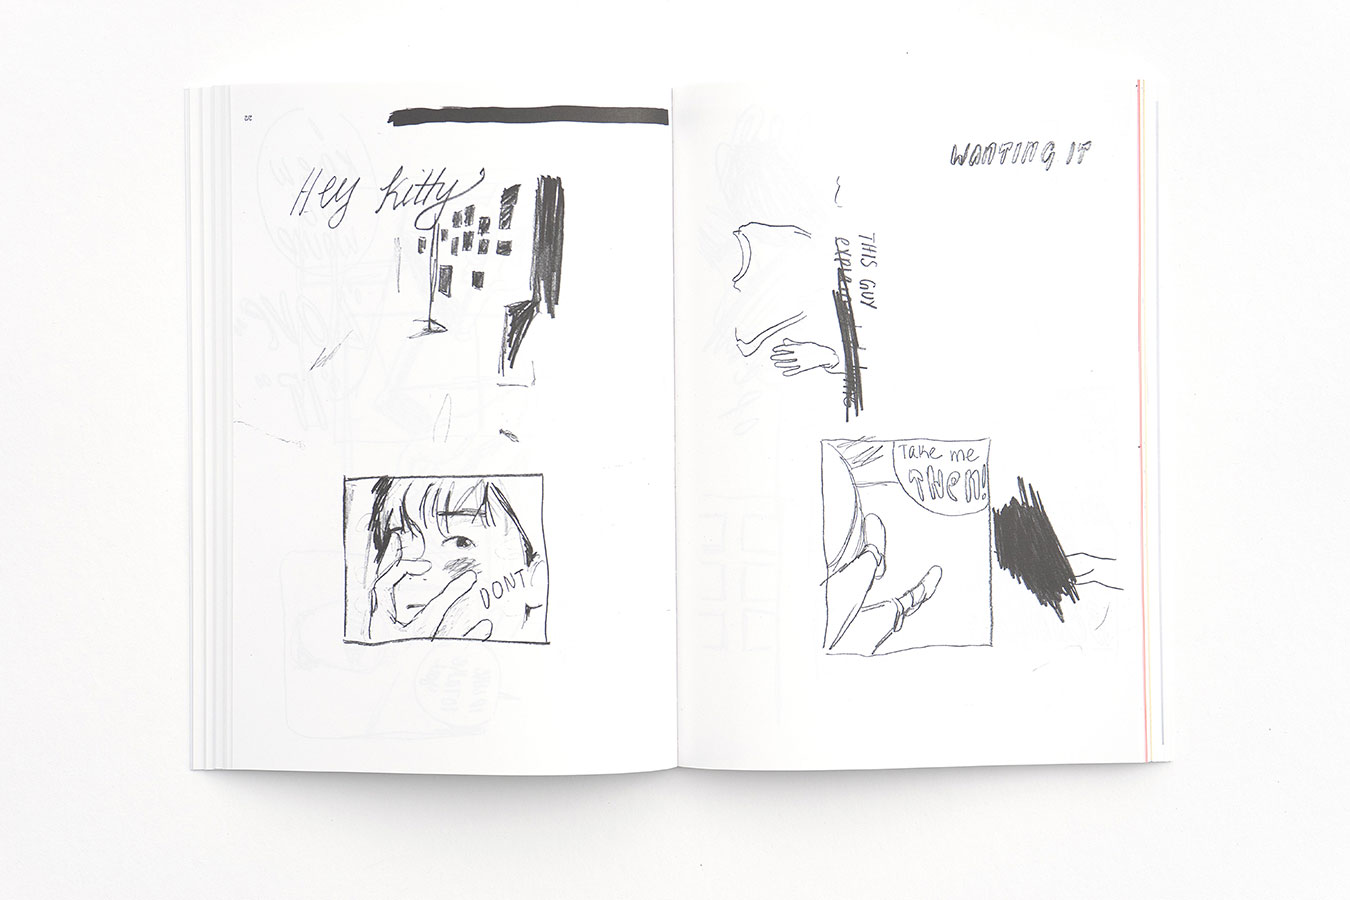 22
Hey Kitty
DONT
WANTING IT
THIS GUY
Take me
THEN!